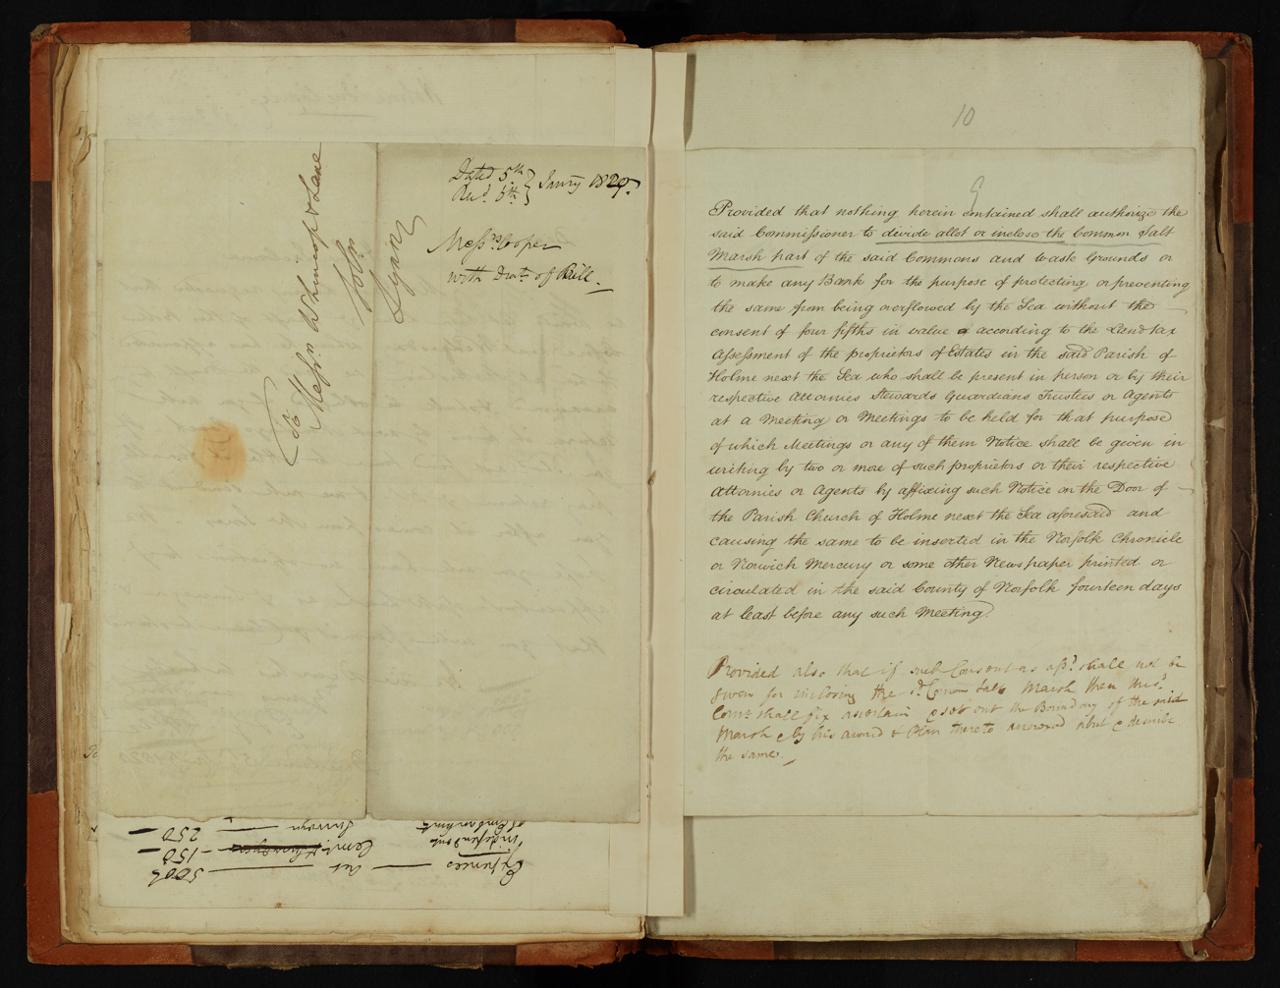 Dated 5th
Recd. 6th } Janry 1820.
Messrs. Cooper
with Draft of Bill.
For
Messrs. Whincop & Lane
Solrs.
Lynn
Expences
independent
of Embankmt.
Act 500£
Comr. 150
Survayr 250
10
9
Provided that nothing herein contained shall authorize the
said Commissioner to divide allot or inclose the Common Salt
Marsh part of the said Commons and Waste Grounds or
to make any Bank for the purpose of protecting or preventing
the same from being overflowed by the Sea without the
consent of four fifths in value according to the Land tax
Assessment of the proprietors of Estates in the said Parish of
Holme next the Sea who shall be present in person or by their
respective Attornies Stewards Guardians Trustees or Agents
at a Meeting or Meetings to be held for that purpose
of which Meetings or any of them Notice shall be given in
writing by two or more of such proprietors or their respective
Attornies or Agents by affixing such Notice on the Door of
the Parish Church of Holme next the Sea aforesaid and
causing the same to be inserted in the Norfolk Chronicle
or Norwich Mercury or some other Newspaper printed or
circulated in the said County of Norfolk fourteen days
at least before any such Meeting.
Provided also that if such Consent as afsd. shall not be
given for inclosing the sd. Common Salt Marsh then the sd.
Comr. shall fix ascertain & set out the Boundary of the said
Marsh & by his award & Plan thereto annexed abut & describe
the same.